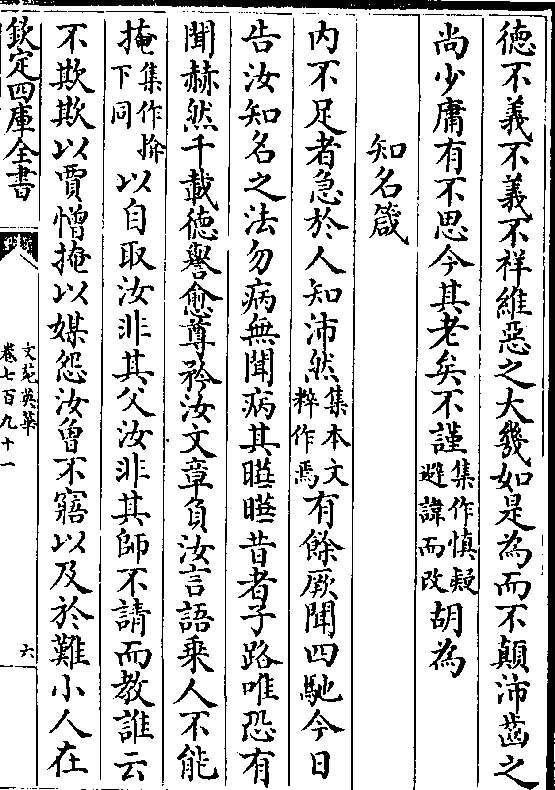 德不義不義不祥維惡之大幾如是為而不顛沛齒之
尚少庸有不思今其老矣不謹集作慎疑避諱而改胡為
知名箴
内不足者急於人知沛然集本文粹作焉有餘厥聞四馳今日
告汝知名之法勿病無聞病其曄曄昔者子路唯恐有
聞赫然千載德譽愈尊矜汝文章負汝言語乘人不能
掩集作揜下同以自取汝非其父汝非其師不請而教誰云
不欺欺以賈憎掩以媒怨汝曾不寤以及於難小人在
欽定四庫全書
文苑英華
卷七百九十一
六